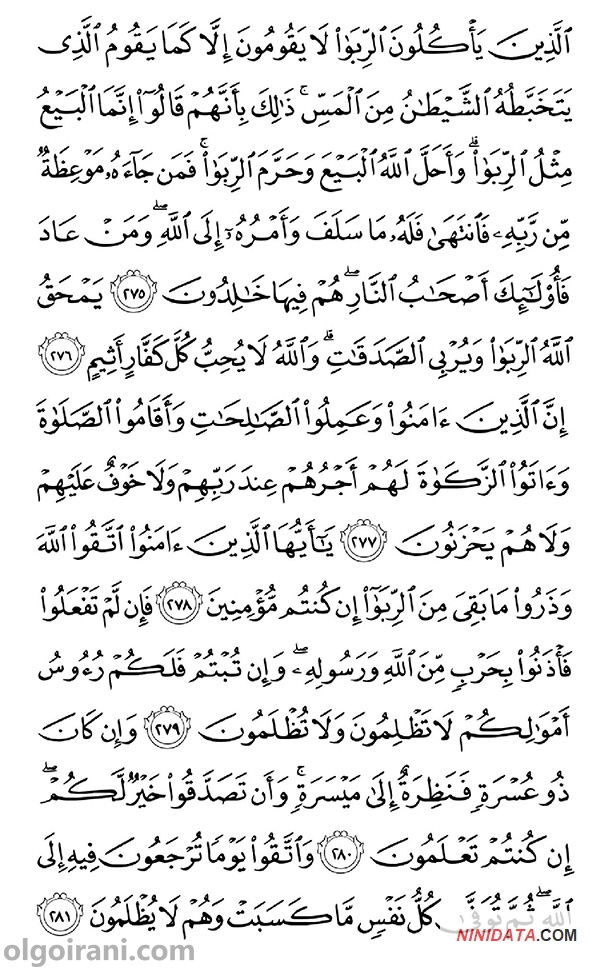 ٱلَّذِينَ يَأۡكُلُونَ ٱلرِّبَوٰاْ لَا يَقُومُونَ إِلَّا كَمَا يَقُومُ ٱلَّذِي
يَتَخَبَّطُهُ ٱلشَّيۡطَٰنُ مِنَ ٱلۡمَسِّۚ ذَٰلِكَ بِأَنَّهُمۡ قَالُوٓاْ إِنَّمَا ٱلۡبَيۡعُ
مِثۡلُ ٱلرِّبَوٰاْۗ وَأَحَلَّ ٱللَّهُ ٱلۡبَيۡعَ وَحَرَّمَ ٱلرِّبَوٰاْۚ فَمَن جَآءَهُۥ مَوۡعِظَةٞ
مِّن رَّبِّهِۦ فَٱنتَهَىٰ فَلَهُۥ مَا سَلَفَ وَأَمۡرُهُۥٓ إِلَى ٱللَّهِۖ وَمَنۡ عَادَ
فَأُوْلَٰٓئِكَ أَصۡحَٰبُ ٱلنَّارِۖ هُمۡ فِيهَا خَٰلِدُونَ ٢٧٥ يَمۡحَقُ
ٱللَّهُ ٱلرِّبَوٰاْ وَيُرۡبِي ٱلصَّدَقَٰتِۗ وَٱللَّهُ لَا يُحِبُّ كُلَّ كَفَّارٍ أَثِيمٍ ٢٧٦
إِنَّ ٱلَّذِينَ ءَامَنُواْ وَعَمِلُواْ ٱلصَّٰلِحَٰتِ وَأَقَامُواْ ٱلصَّلَوٰةَ
وَءَاتَوُاْ ٱلزَّكَوٰةَ لَهُمۡ أَجۡرُهُمۡ عِندَ رَبِّهِمۡ وَلَا خَوۡفٌ عَلَيۡهِمۡ
وَلَا هُمۡ يَحۡزَنُونَ ٢٧٧ يَٰٓأَيُّهَا ٱلَّذِينَ ءَامَنُواْ ٱتَّقُواْ ٱللَّهَ
وَذَرُواْ مَا بَقِيَ مِنَ ٱلرِّبَوٰٓاْ إِن كُنتُم مُّؤۡمِنِينَ ٢٧٨ فَإِن لَّمۡ تَفۡعَلُواْ
فَأۡذَنُواْ بِحَرۡبٖ مِّنَ ٱللَّهِ وَرَسُولِهِۦۖ وَإِن تُبۡتُمۡ فَلَكُمۡ رُءُوسُ
أَمۡوَٰلِكُمۡ لَا تَظۡلِمُونَ وَلَا تُظۡلَمُونَ ٢٧٩ وَإِن كَانَ
ذُو عُسۡرَةٖ فَنَظِرَةٌ إِلَىٰ مَيۡسَرَةٖۚ وَأَن تَصَدَّقُواْ خَيۡرٞ لَّكُمۡۖ
إِن كُنتُمۡ تَعۡلَمُونَ ٢٨٠ وَٱتَّقُواْ يَوۡمٗا تُرۡجَعُونَ فِيهِ إِلَى
ٱللَّهِۖ ثُمَّ تُوَفَّىٰ كُلُّ نَفۡسٖ مَّا كَسَبَتۡ وَهُمۡ لَا يُظۡلَمُونَ ٢٨١
NINIDATA.COM
olgoirani.com